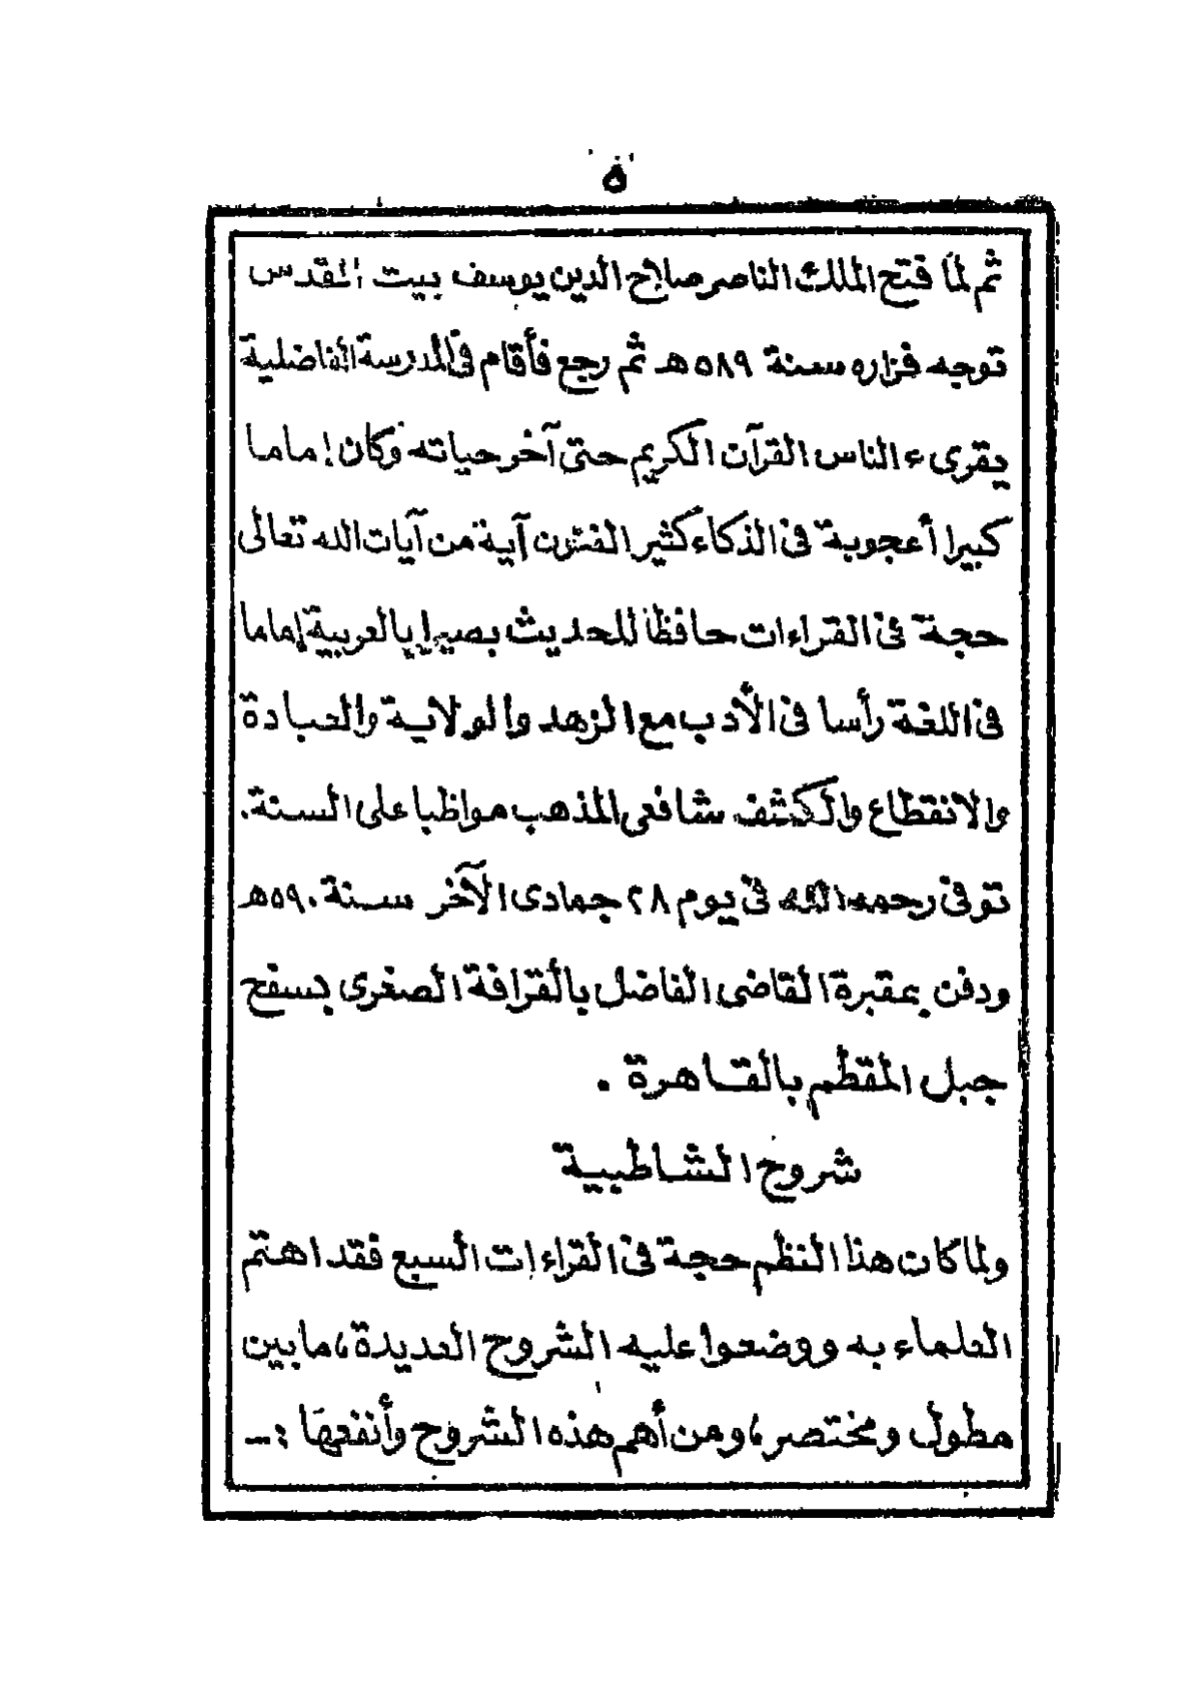 ٥
ثم لما فتح الملك الناصر صلاح الدين يوسف بيت المقدس
توجه فزاره سنة ٥٨٩هـ ثم رجع فأقام فى المدرسة الفاضلية
يقرىء الناس القرآن الكريم حتى آخر حياته وكان إماما
كبيرا أعجوبة فى الذكاء كثير الفنون آية من آيات الله تعالى
حجة فى القراءات حافظا للحديث بصيرا بالعربية إماما
فى اللغة رأسا فى الأدب مع الزهد والولاية والعبادة
والانقطاع والكشف شافعى المذهب مواظبا على السنة.
توفى رحمه الله فى يوم ٢٨ جمادى الآخر سنة ٥٩٠هـ
ودفن بمقبرة القاضى الفاضل بالقرافة الصغرى بسفح
جبل المقطم بالقاهرة .
شروح الشاطبية
ولما كان هذا النظم حجة فى القراءات السبع فقد اهتم
العلماء به ووضعوا عليه الشروح العديدة، ما بين
مطول ومختصر، ومن أهم هذه الشروح وأنفعها :-